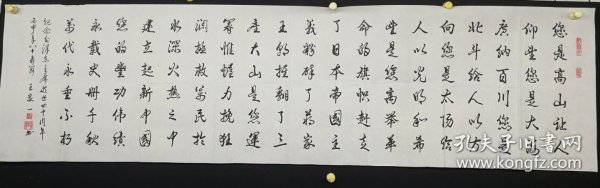 您是高山让人
仰望您是大海
广纳百川您是
北斗给人以方
向您是太阳给
人以光明和希
望是您高举革
命的旗帜赶走
了日本帝国主
义
了蒋家
王朝推翻了三
座大山是您运
筹帷幄力挽狂
澜拯救万民于
水深火热之中
建立起新中国
您的丰功伟绩
永载史册千秋
万代永垂不朽
纪念毛泽东主席逝世四十周年
丙申年八十寿翁
孔夫子旧书网
kongfz.com